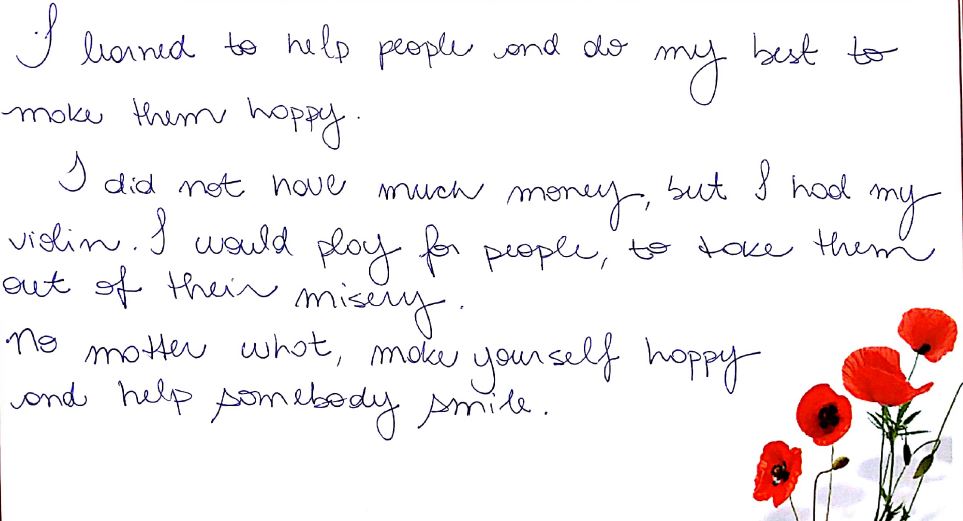 I learned to help people and do my best to
make them happy.
I did not have much money, but I had my
violin. I would play for people, to take them
out of their misery.
No matter what, make yourself happy
and help somebody smile.